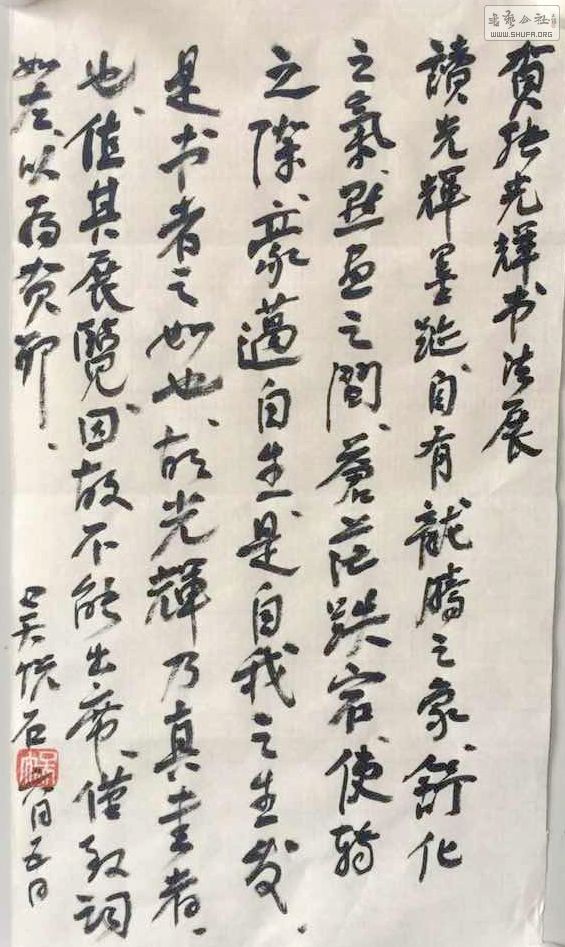 書藝公社
WWW.SHUFA.ORG
賀張光輝书法展
讀光輝墨跡自有龍騰之象、舒化
之氣、點画之間、蒼茫跌宕、使轉
之際、豪邁自生是自我之生發、
是书者之如也、故光輝乃真書者、
也、值其展覽因故不能出席、僅致詞
如左、以為賀耶、
吳悦石 月五日